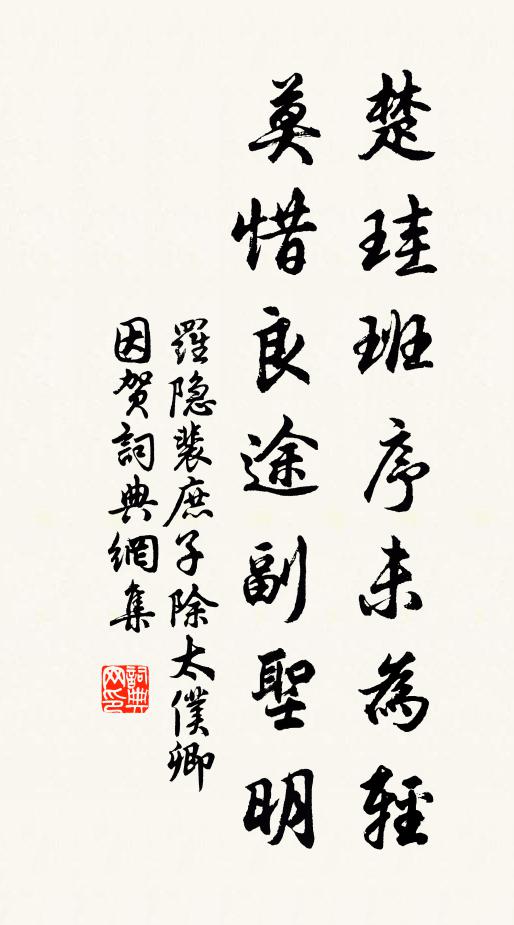 楚珪班序未為輕
莫惜良途副聖明
羅隐裴庶子除太僕卿
因贺詞典網集
詞典网印